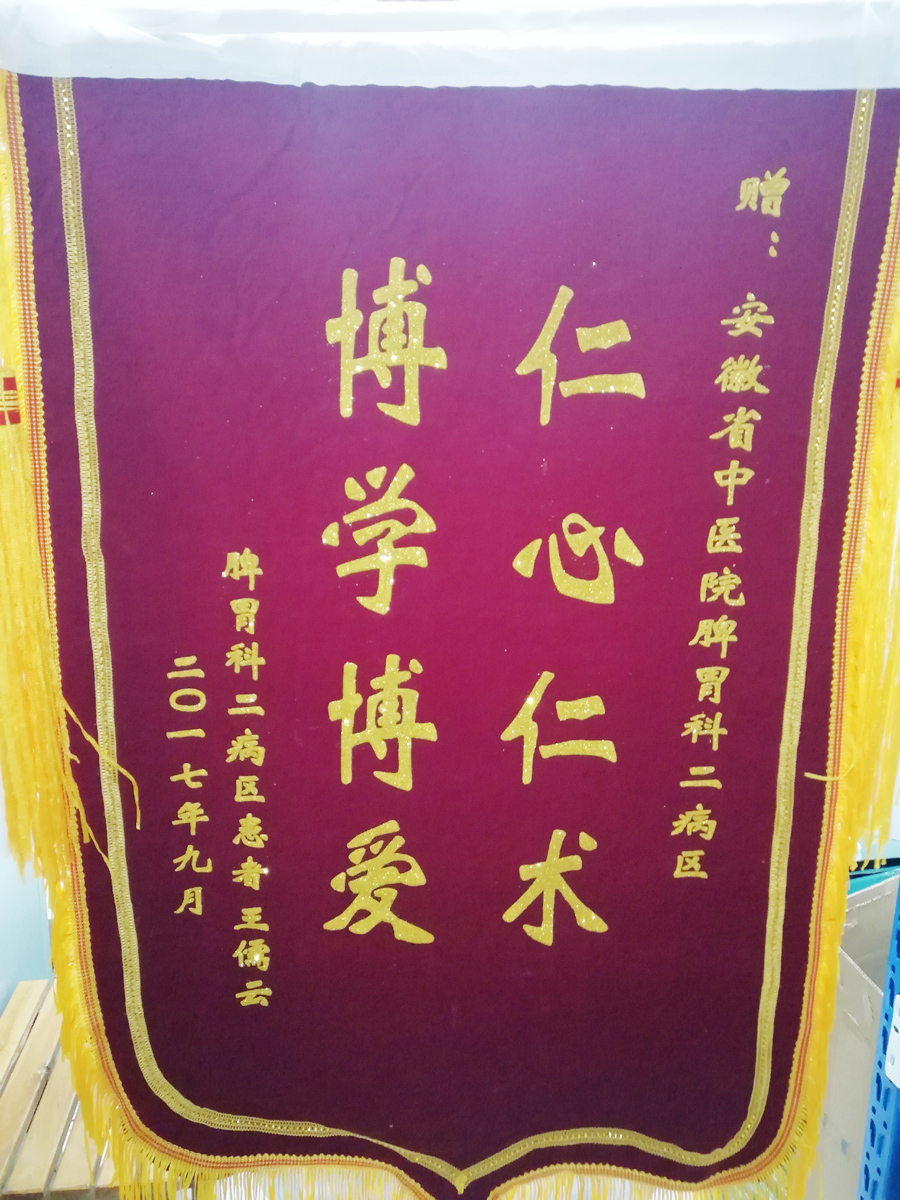 赠：安徽省中医院脾胃科二病区
仁心仁术
博学博爱
脾胃科二病区患者王儒云
二〇一七年九月